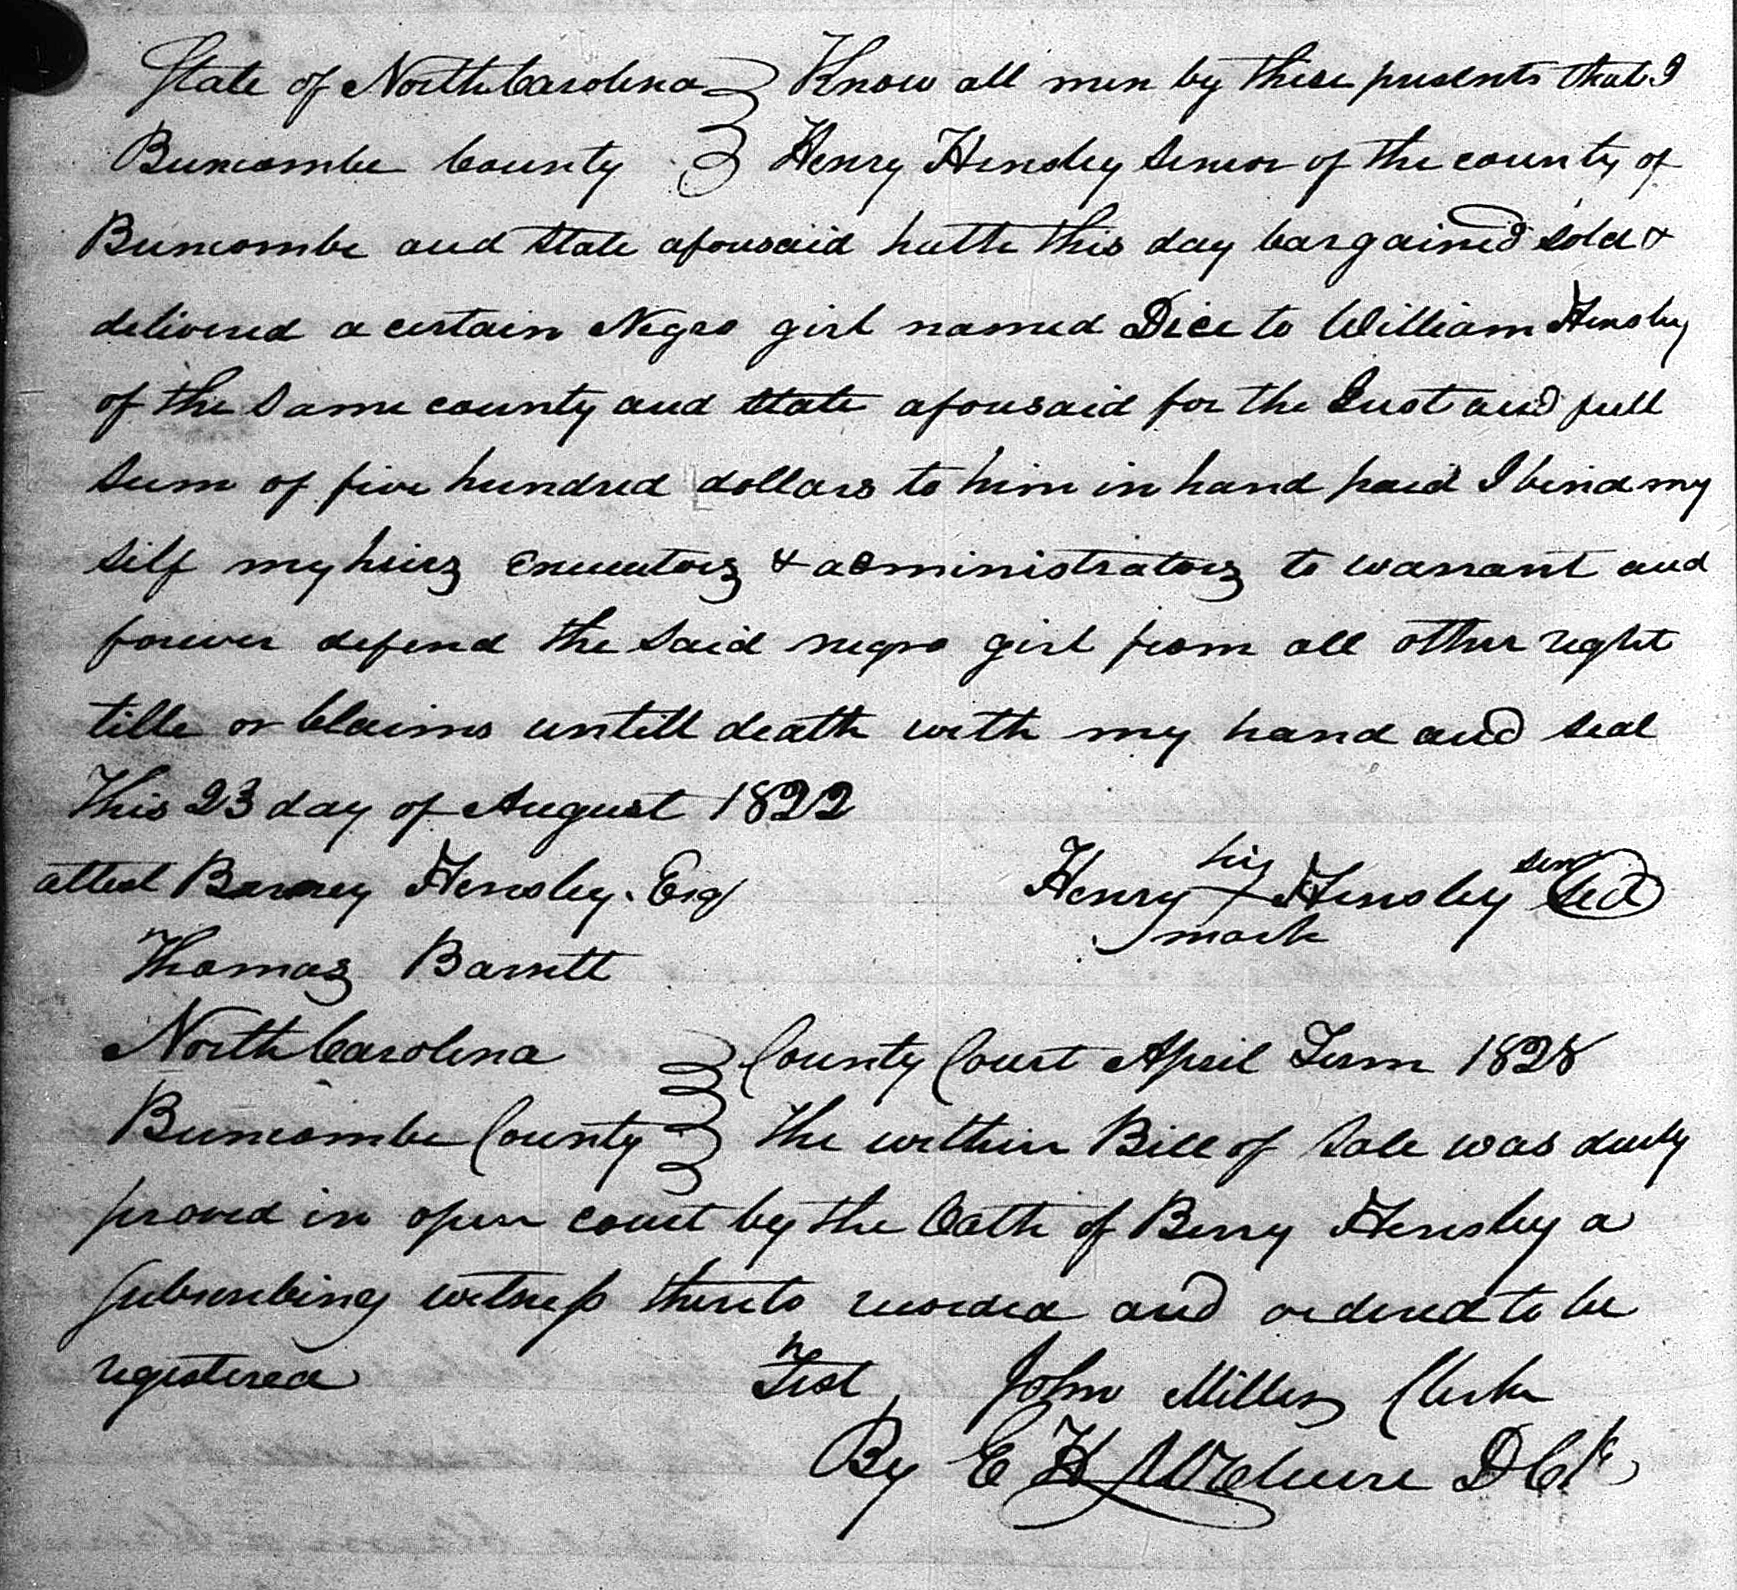 State of North Carolina Know all men by these presents that I
Buncombe County Henry Hensley Senior of the county of
Buncombe and State aforesaid hath this day bargained sold &
delivered a certain Negro girl named Dice to William Hensley
of the Same county and State aforesaid for the Just and full
Sum of five hundred dollars to him in hand paid I bind my
self my heirs executors & administrators to warrant and
forever defend the Said negro girl from all other right
title or Claims untill death with my hand and seal
This 23 day of August 1822
attest Barney Hensley Esq
Henry his Hensley senr Sed
mark
Thomas Barrett
North Carolina County Court April Term 1828
Buncombe County The within Bill of Sale was duely
proved in open court by the Oath of Berry Hensley a
Subscribing witness thereto recorded and ordered to be
registered Test John Miller Clerk
By E H McClure D Clk